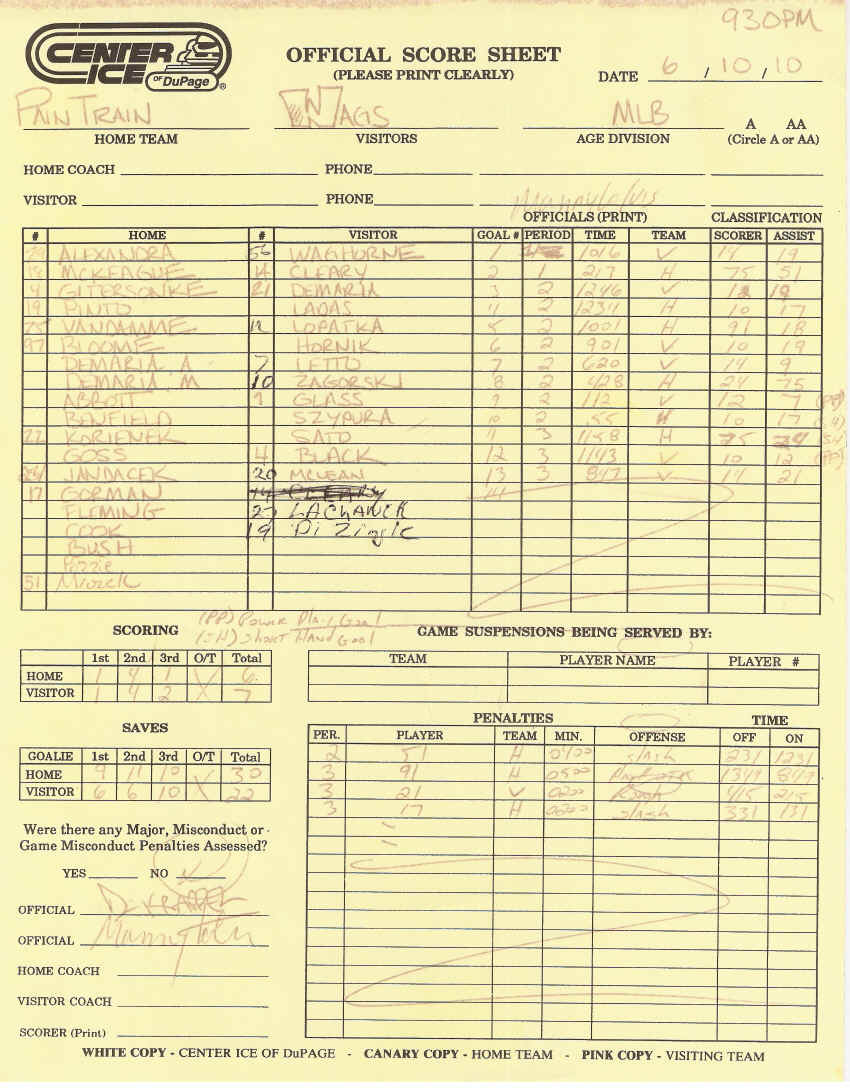 930PM
CENTER ICE OF DuPage ®
OFFICIAL SCORE SHEET
(PLEASE PRINT CLEARLY)
DATE 6 / 10 / 10
PAIN TRAIN WAGS MLB
HOME TEAM VISITORS AGE DIVISION A AA (Circle A or AA)
HOME COACH PHONE
VISITOR PHONE
OFFICIALS (PRINT) CLASSIFICATION
# HOME # VISITOR GOAL # PERIOD TIME TEAM SCORER ASSIST
ALEXANDRA 56 WAGHORNE 1 1016 V 14 19
MCKEAGUE 14 CLEARY 2 1 217 H 75 51
4 GITERSONKE 21 DEMARIA 3 2 1246 V 12 19
19 PINTO LADAS 4 2 1234 H 10 17
75 VANDAMME 12 LOPATKA 5 2 1001 H 91 18
97 BLOOME HORNIK 6 2 901 V 10 19
DEMARIA A 7 LETTO 7 2 620 V 14 9
DEMARIA M 10 ZAGORSKI 8 2 428 H 24 75
ABBOTT 9 GLASS 9 2 112 V 12 7 (PP)
BENFIELD SZYPURA 10 2 .55 H 10 17 (SH)
22 KORIENEK SATO 11 3 1158 H 75 24 SH
GOSS 4 BLACK 12 3 1143 V 10 12 (PP)
JANDACEK 20 MCLEAN 13 3 847 V 14 21
17 GORMAN 14 CLEARY
FLEMING 27 LACHANCE
COOK 19 Di Zingle
BUSH
Pozzie
51 Mrozek
(PP) Power Play Goal
(SH) Short Hand Goal
SCORING
1st 2nd 3rd O/T Total
HOME 1 4 1 X 6
VISITOR 1 4 2 X 7
GAME SUSPENSIONS BEING SERVED BY:
TEAM PLAYER NAME PLAYER #
SAVES
GOALIE 1st 2nd 3rd O/T Total
HOME 9 11 10 X 30
VISITOR 6 6 10 X 22
PENALTIES TIME
PER. PLAYER TEAM MIN. OFFENSE OFF ON
2 51 H 0400 slash 231 1231
3 91 H 0500 1347 847
3 21 V 0200 Rough 415 215
3 17 H 0200 slash 331 131
Were there any Major, Misconduct or
Game Misconduct Penalties Assessed?
YES NO ✓
OFFICIAL
OFFICIAL
HOME COACH
VISITOR COACH
SCORER (Print)
WHITE COPY - CENTER ICE OF DuPAGE - CANARY COPY - HOME TEAM - PINK COPY - VISITING TEAM